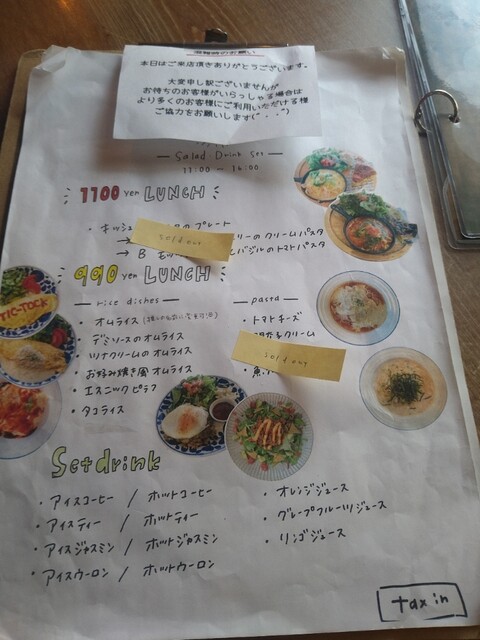 混雑時のお願い
本日はご来店頂きありがとうございます。
大変申し訳ございませんが
お待ちのお客様がいらっしゃる場合は
より多くのお客様にご利用いただける様
ご協力をお願いします(^ . . ^)
— Salad Drink Set —
11:00 ― 16:00
1100 yen LUNCH
・キッシュ のプレート
→ リーのクリームパスタ
→ B とバジルのトマトパスタ
sold out
990 yen LUNCH
— rice dishes —
・オムライス
・デミソースのオムライス
・ツナクリームのオムライス
・お好み焼き風オムライス
・エスニックピラフ
・タコライス
— pasta —
・トマトチーズ
クリーム
sold out
・魚
TIC-TOCK
Set drink
・アイスコーヒー / ホットコーヒー
・アイスティー / ホットティー
・アイスジャスミン / ホットジャスミン
・アイスウーロン / ホットウーロン
・オレンジジュース
・グレープフルーツジュース
・リンゴジュース
tax in